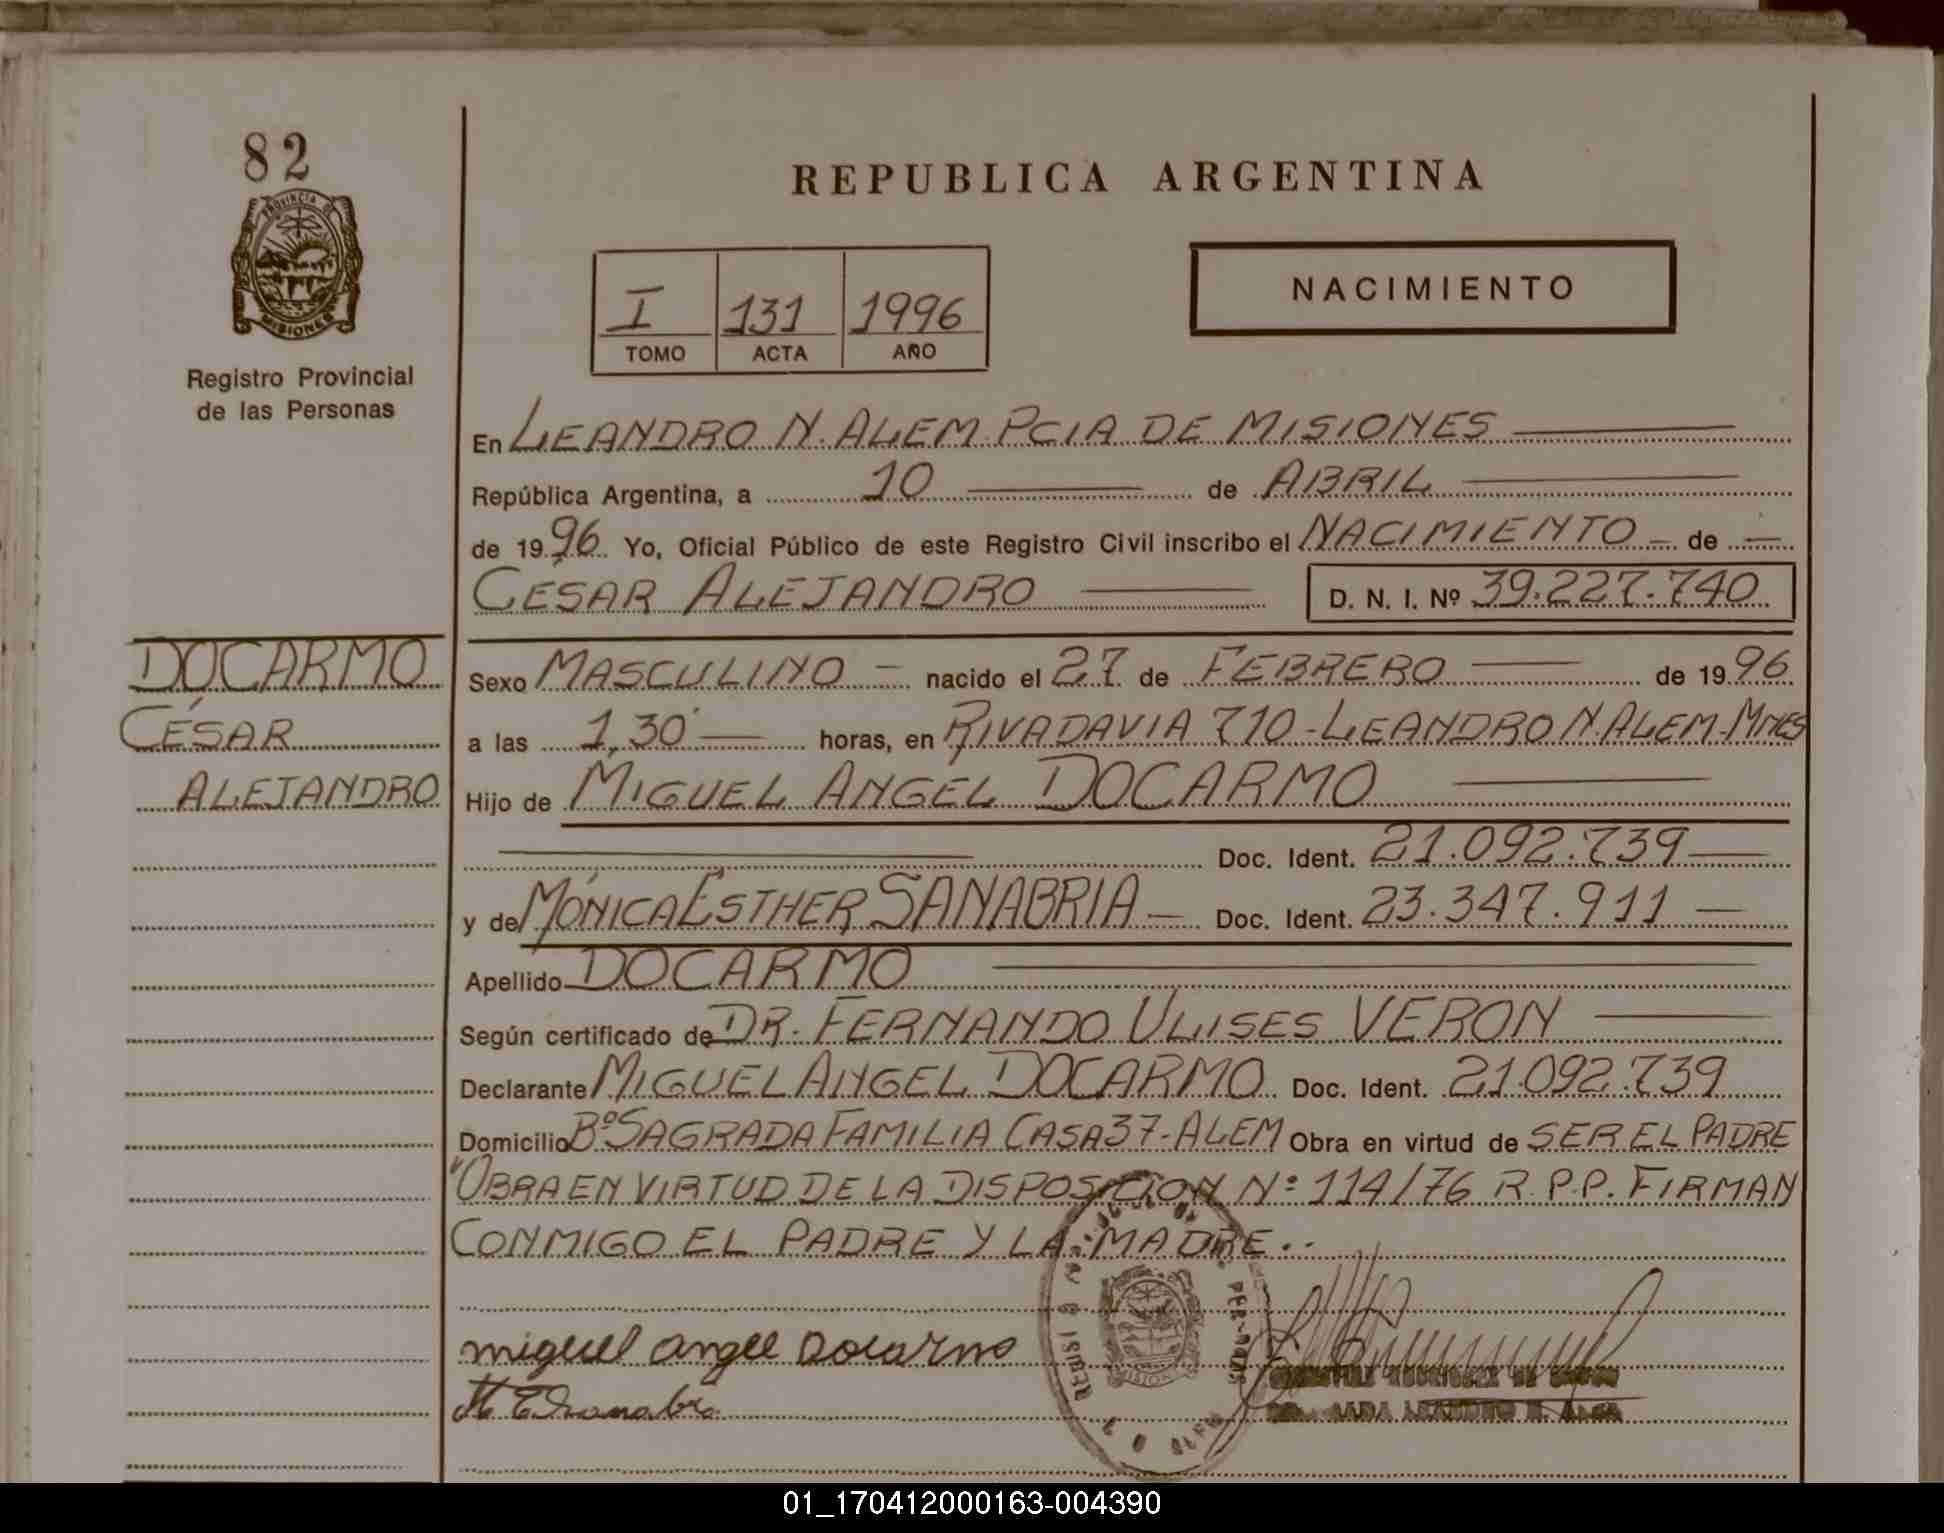 82
PROVINCIA DE
MISIONES
Registro Provincial
de las Personas
REPUBLICA ARGENTINA
I 131 1996
TOMO ACTA AÑO
NACIMIENTO
En LEANDRO N. ALEM PCIA DE MISIONES
República Argentina, a 10 de ABRIL
de 1996 Yo, Oficial Público de este Registro Civil inscribo el NACIMIENTO de
CÉSAR ALEJANDRO D. N. I. Nº 39.227.740
DOCARMO
CÉSAR
ALEJANDRO
Sexo MASCULINO nacido el 27 de FEBRERO de 1996
a las 1,30 horas, en RIVADAVIA 710 - LEANDRO N. ALEM - MNES
Hijo de MIGUEL ANGEL DOCARMO
Doc. Ident. 21.092.739
y de MÓNICA ESTHER SANABRIA Doc. Ident. 23.347.911
Apellido DOCARMO
Según certificado de DR. FERNANDO ULISES VERON
Declarante MIGUEL ANGEL DOCARMO Doc. Ident. 21.092.739
Domicilio Bº SAGRADA FAMILIA CASA 37 - ALEM Obra en virtud de SER EL PADRE
"OBRA EN VIRTUD DE LA DISPOSICION Nº 114/76 R.P.P. FIRMAN
CONMIGO EL PADRE Y LA MADRE..
miguel angel Docarmo
M E Sanabria
MISIONES
01_170412000163-004390